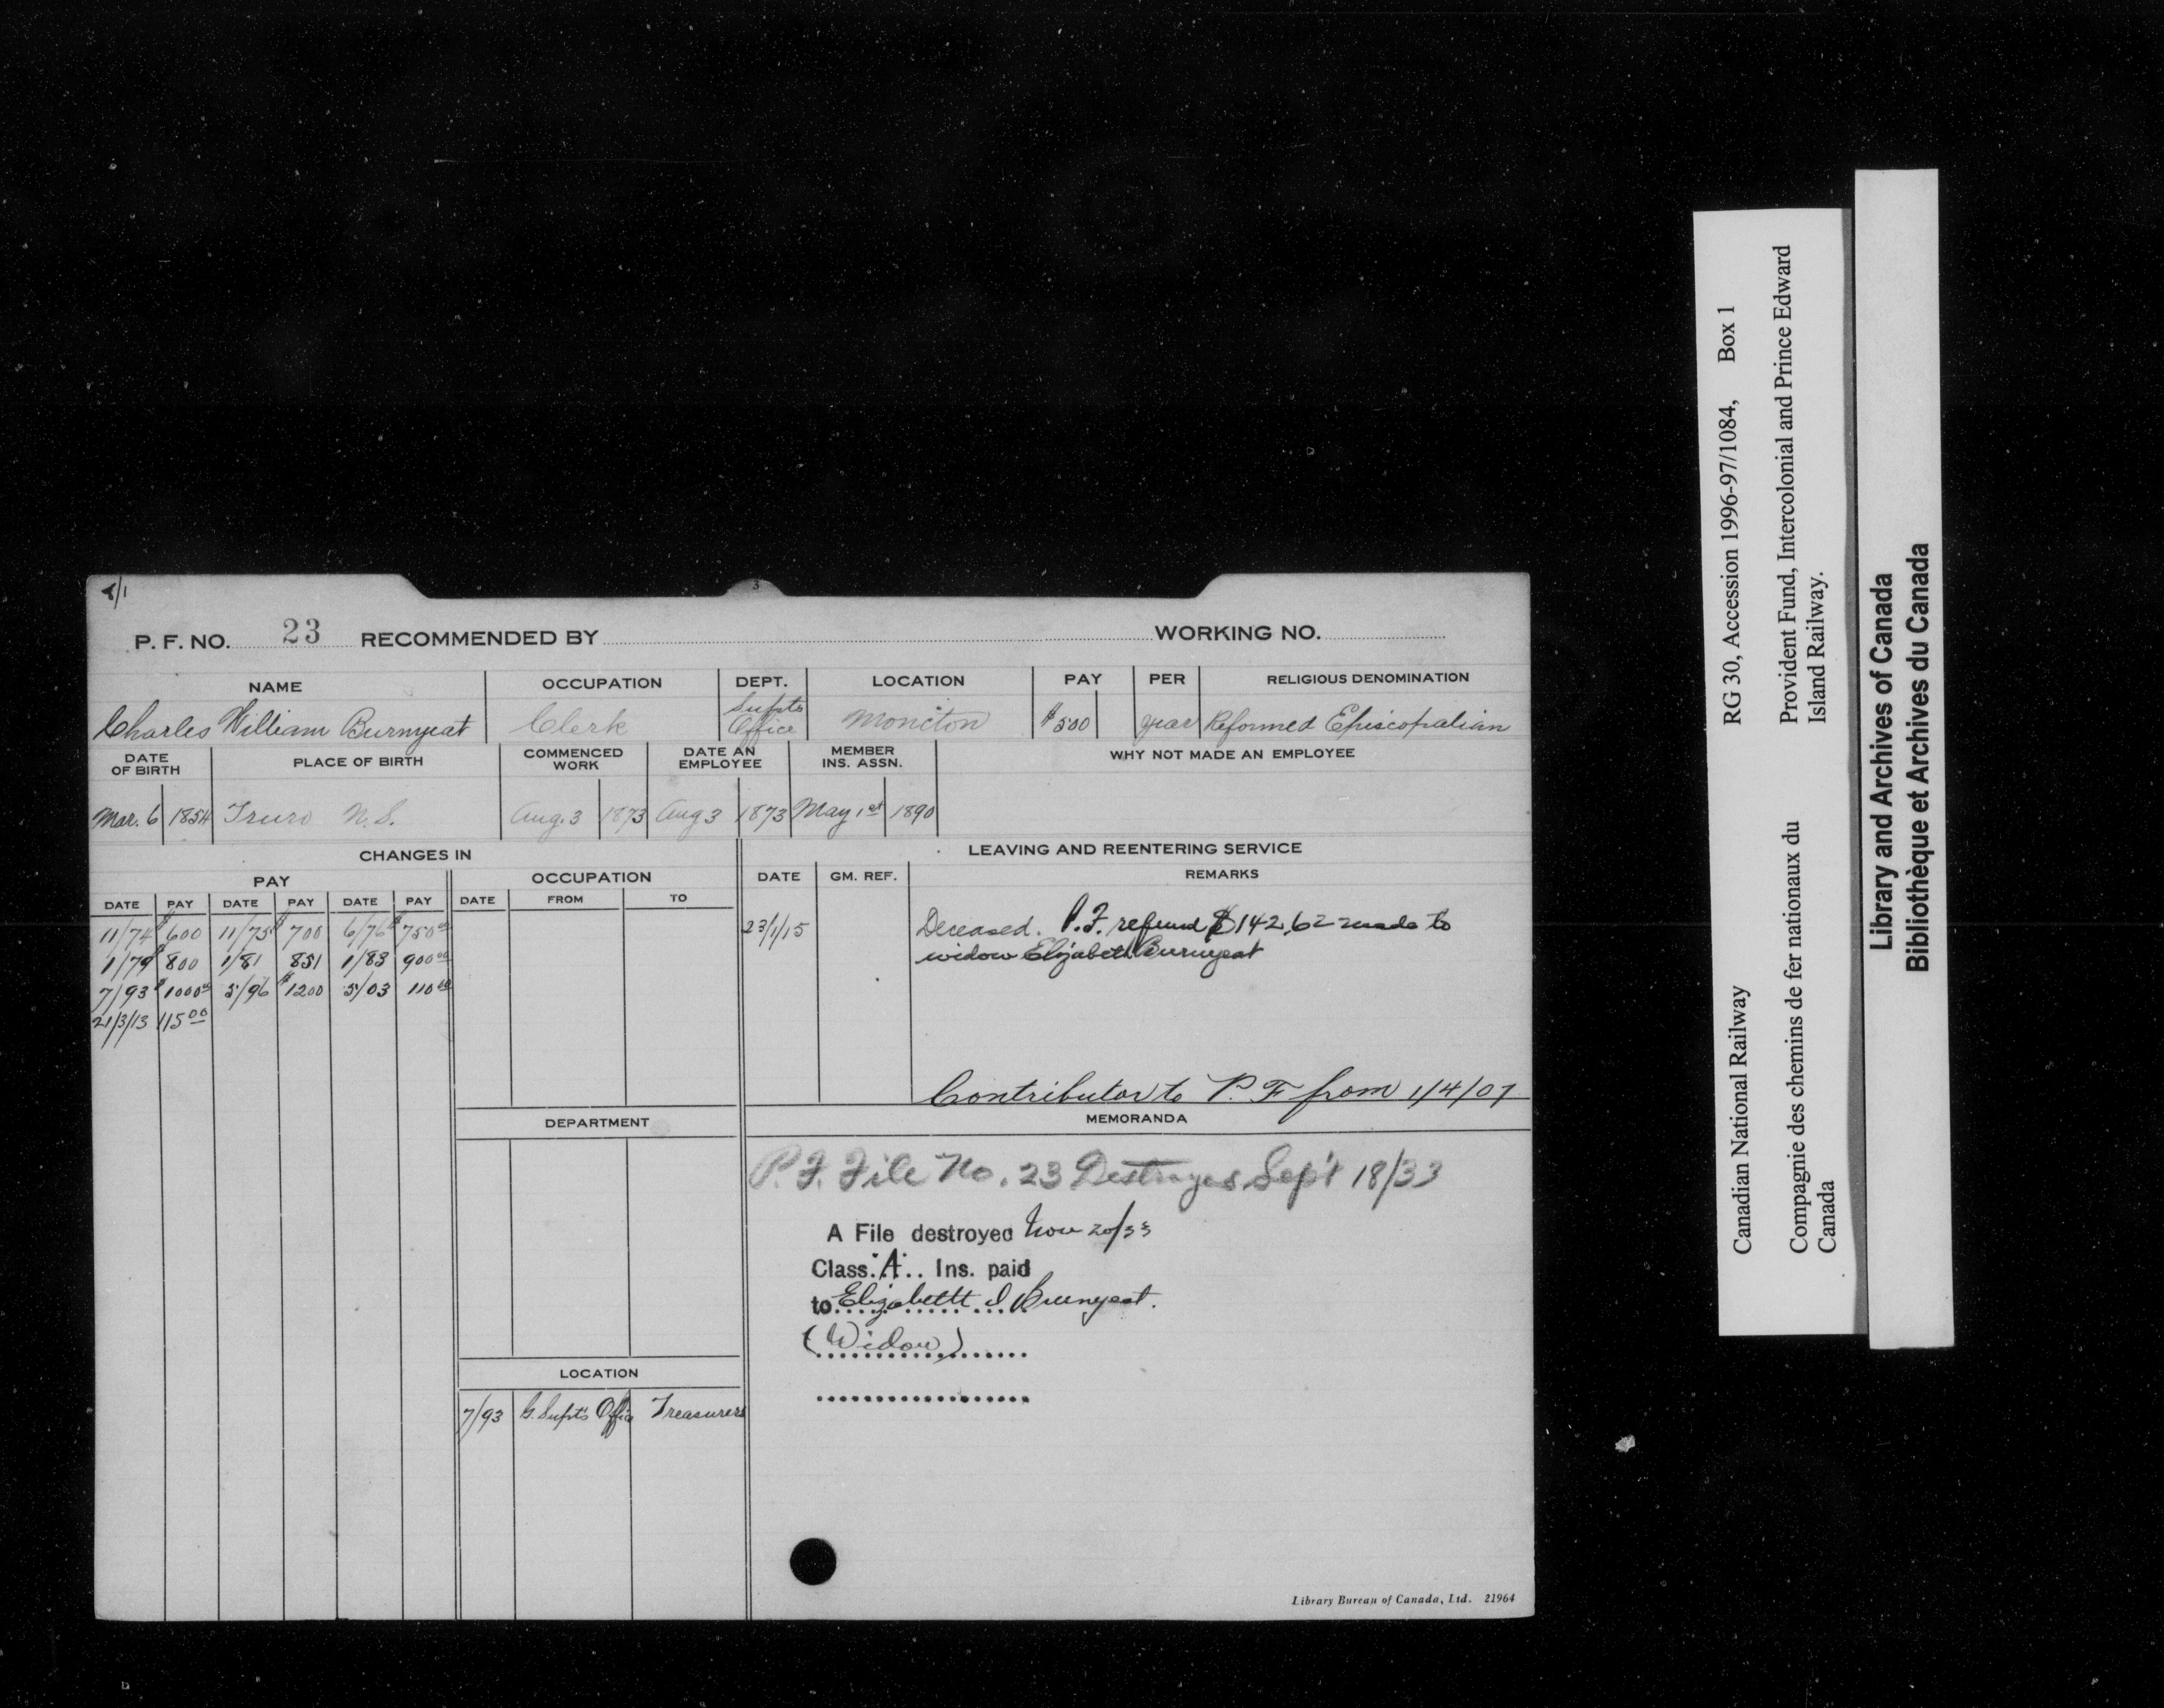 1/1
3
P. F. NO. 23 RECOMMENDED BY WORKING NO.
NAME OCCUPATION DEPT. LOCATION PAY PER RELIGIOUS DENOMINATION
Charles William Burnyeat Clerk Supts Office Moncton $500 year Reformed Episcopalian
DATE OF BIRTH PLACE OF BIRTH COMMENCED WORK DATE AN EMPLOYEE MEMBER INS. ASSN. WHY NOT MADE AN EMPLOYEE
Mar. 6 1854 Truro N.S. Aug. 3 1873 Aug 3 1873 May 1st 1890
CHANGES IN LEAVING AND REENTERING SERVICE
PAY OCCUPATION DATE GM. REF. REMARKS
DATE PAY DATE PAY DATE PAY DATE FROM TO
11/74 $600 11/75 $700 6/76 $750.00
1/79 $800 1/81 851 1/83 900.00
7/93 $1000.00 5/96 $1200 5/03 110.00
21/3/13 115.00
23/1/15 Deceased. P.F. refund $142.62 made to
widow Elizabeth Burnyeat
Contributor to P.F from 1/4/07
DEPARTMENT
MEMORANDA
P.F. File No. 23 Destroyed Sept 18/33
A File destroyed Nov 20/33
Class A Ins. paid
to Elizabeth I Burnyeat.
(Widow)
LOCATION
7/93 G. Supt's Office Treasurers
Library Bureau of Canada, Ltd. 21964
Canadian National Railway RG 30, Accession 1996-97/1084, Box 1
Compagnie des chemins de fer nationaux du Canada
Provident Fund, Intercolonial and Prince Edward Island Railway.
Library and Archives of Canada
Bibliothèque et Archives du Canada